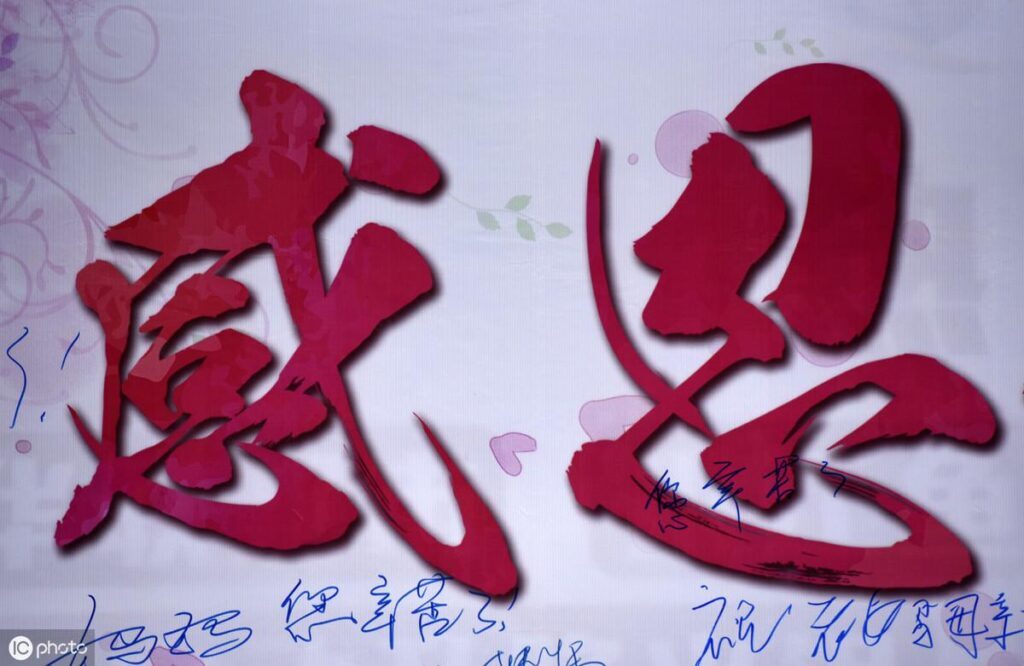 感恩
您辛苦了
妈妈 您辛苦了
祝
iC photo